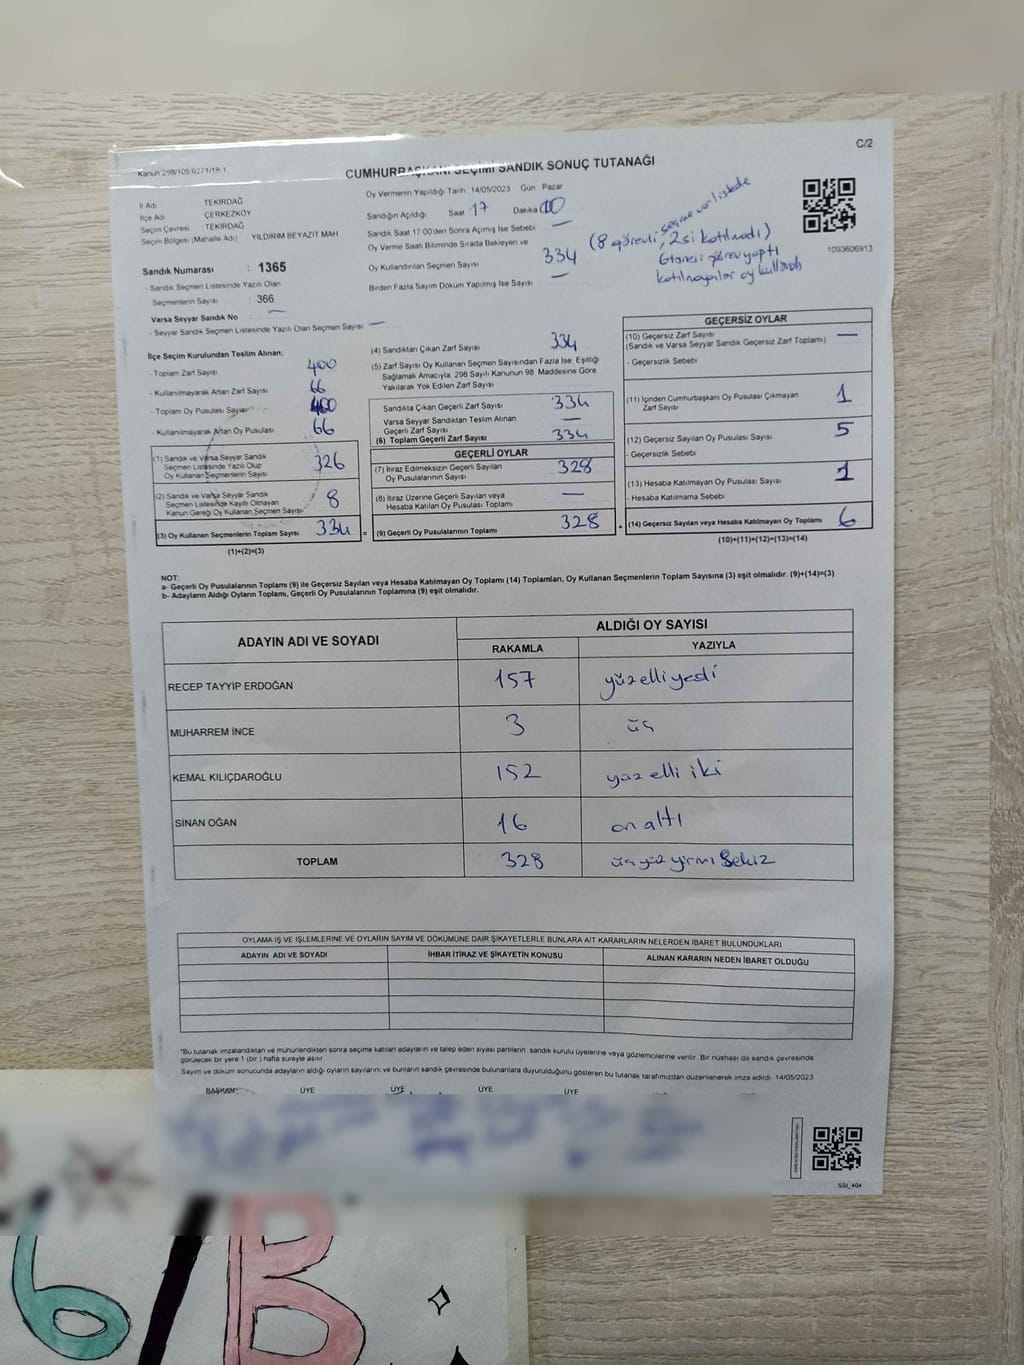 C/2
Kanun 298/105 6271/18-1
CUMHURBAŞKANI SEÇİMİ SANDIK SONUÇ TUTANAĞI
İl Adı TEKİRDAĞ
İlçe Adı ÇERKEZKÖY
Seçim Çevresi : TEKİRDAĞ
Seçim Bölgesi (Mahalle Adı) YILDIRIM BEYAZIT MAH
Sandık Numarası : 1365
- Sandık Seçmen Listesinde Yazılı Olan
Seçmenlerin Sayısı : 366
Varsa Seyyar Sandık No : —
- Seyyar Sandık Seçmen Listesinde Yazılı Olan Seçmen Sayısı —
Oy Vermenin Yapıldığı Tarih 14/05/2023 Gün Pazar
Sandığın Açıldığı Saat 17 Dakika 00
Sandık Saat 17:00'den Sonra Açılmış İse Sebebi —
Oy Verme Saati Bitiminde Sırada Bekleyen ve
Oy Kullandırılan Seçmen Sayısı 334
Birden Fazla Sayım Döküm Yapılmış İse Sayısı —
(8 görevli, seçmen listede
2si katılmadı)
6tanesi görev yaptı
katılmayanlar oy kullandı
1093606913
İlçe Seçim Kurulundan Teslim Alınan;
- Toplam Zarf Sayısı 400
- Kullanılmayarak Artan Zarf Sayısı 66
- Toplam Oy Pusulası Sayısı 400
- Kullanılmayarak Artan Oy Pusulası 66
(1) Sandık ve Varsa Seyyar Sandık
Seçmen Listesinde Yazılı Olup
Oy Kullanan Seçmenlerin Sayısı 326
(2) Sandık ve Varsa Seyyar Sandık
Seçmen Listesinde Kayıtlı Olmayan
Kanun Gereği Oy Kullanan Seçmen Sayısı 8
(3) Oy Kullanan Seçmenlerin Toplam Sayısı 334 =
(1)+(2)=(3)
(4) Sandıktan Çıkan Zarf Sayısı 334
(5) Zarf Sayısı Oy Kullanan Seçmen Sayısından Fazla İse, Eşitliği
Sağlamak Amacıyla, 298 Sayılı Kanunun 98. Maddesine Göre
Yakılarak Yok Edilen Zarf Sayısı —
Sandıkta Çıkan Geçerli Zarf Sayısı 334
Varsa Seyyar Sandıktan Teslim Alınan
Geçerli Zarf Sayısı —
(6) Toplam Geçerli Zarf Sayısı 334
GEÇERLİ OYLAR
(7) İtiraz Edilmeksizin Geçerli Sayılan
Oy Pusulalarının Sayısı 328
(8) İtiraz Üzerine Geçerli Sayılan veya
Hesaba Katılan Oy Pusulası Toplamı —
(9) Geçerli Oy Pusulalarının Toplamı 328 +
GEÇERSİZ OYLAR
(10) Geçersiz Zarf Sayısı —
(Sandık ve Varsa Seyyar Sandık Geçersiz Zarf Toplamı)
- Geçersizlik Sebebi
(11) İçinden Cumhurbaşkanı Oy Pusulası Çıkmayan
Zarf Sayısı 1
(12) Geçersiz Sayılan Oy Pusulası Sayısı 5
- Geçersizlik Sebebi
(13) Hesaba Katılmayan Oy Pusulası Sayısı 1
- Hesaba Katılmama Sebebi
(14) Geçersiz Sayılan veya Hesaba Katılmayan Oy Toplamı 6
(10)+(11)+(12)+(13)=(14)
NOT:
a- Geçerli Oy Pusulalarının Toplamı (9) ile Geçersiz Sayılan veya Hesaba Katılmayan Oy Toplamı (14) Toplamları, Oy Kullanan Seçmenlerin Toplam Sayısına (3) eşit olmalıdır. (9)+(14)=(3)
b- Adayların Aldığı Oyların Toplamı, Geçerli Oy Pusulalarının Toplamına (9) eşit olmalıdır.
ADAYIN ADI VE SOYADI ALDIĞI OY SAYISI
RAKAMLA YAZIYLA
RECEP TAYYİP ERDOĞAN 157 yüzelliyedi
MUHARREM İNCE 3 üç
KEMAL KILIÇDAROĞLU 152 yüz elli iki
SİNAN OĞAN 16 on altı
TOPLAM 328 üç yüz yirmi sekiz
OYLAMA İŞ VE İŞLEMLERİNE VE OYLARIN SAYIM VE DÖKÜMÜNE DAİR ŞİKAYETLERLE BUNLARA AİT KARARLARIN NELERDEN İBARET BULUNDUKLARI
ADAYIN ADI VE SOYADI İHBAR İTİRAZ VE ŞİKAYETİN KONUSU ALINAN KARARIN NEDEN İBARET OLDUĞU
*Bu tutanak imzalandıktan ve mühürlendikten sonra seçime katılan adayların ve talep eden siyasi partilerin sandık kurulu üyelerine veya gözlemcilerine verilir. Bir nüshası da sandık çevresinde
görülecek bir yere 1 (bir) hafta süreyle asılır.
Sayım ve döküm sonucunda adayların aldığı oyların sayılarını ve bunların sandık çevresinde bulunanlara duyurulduğunu gösteren bu tutanak tarafımızdan düzenlenerek imza edildi. 14/05/2023
BAŞKAN ÜYE ÜYE ÜYE ÜYE
SSI_404
6/B